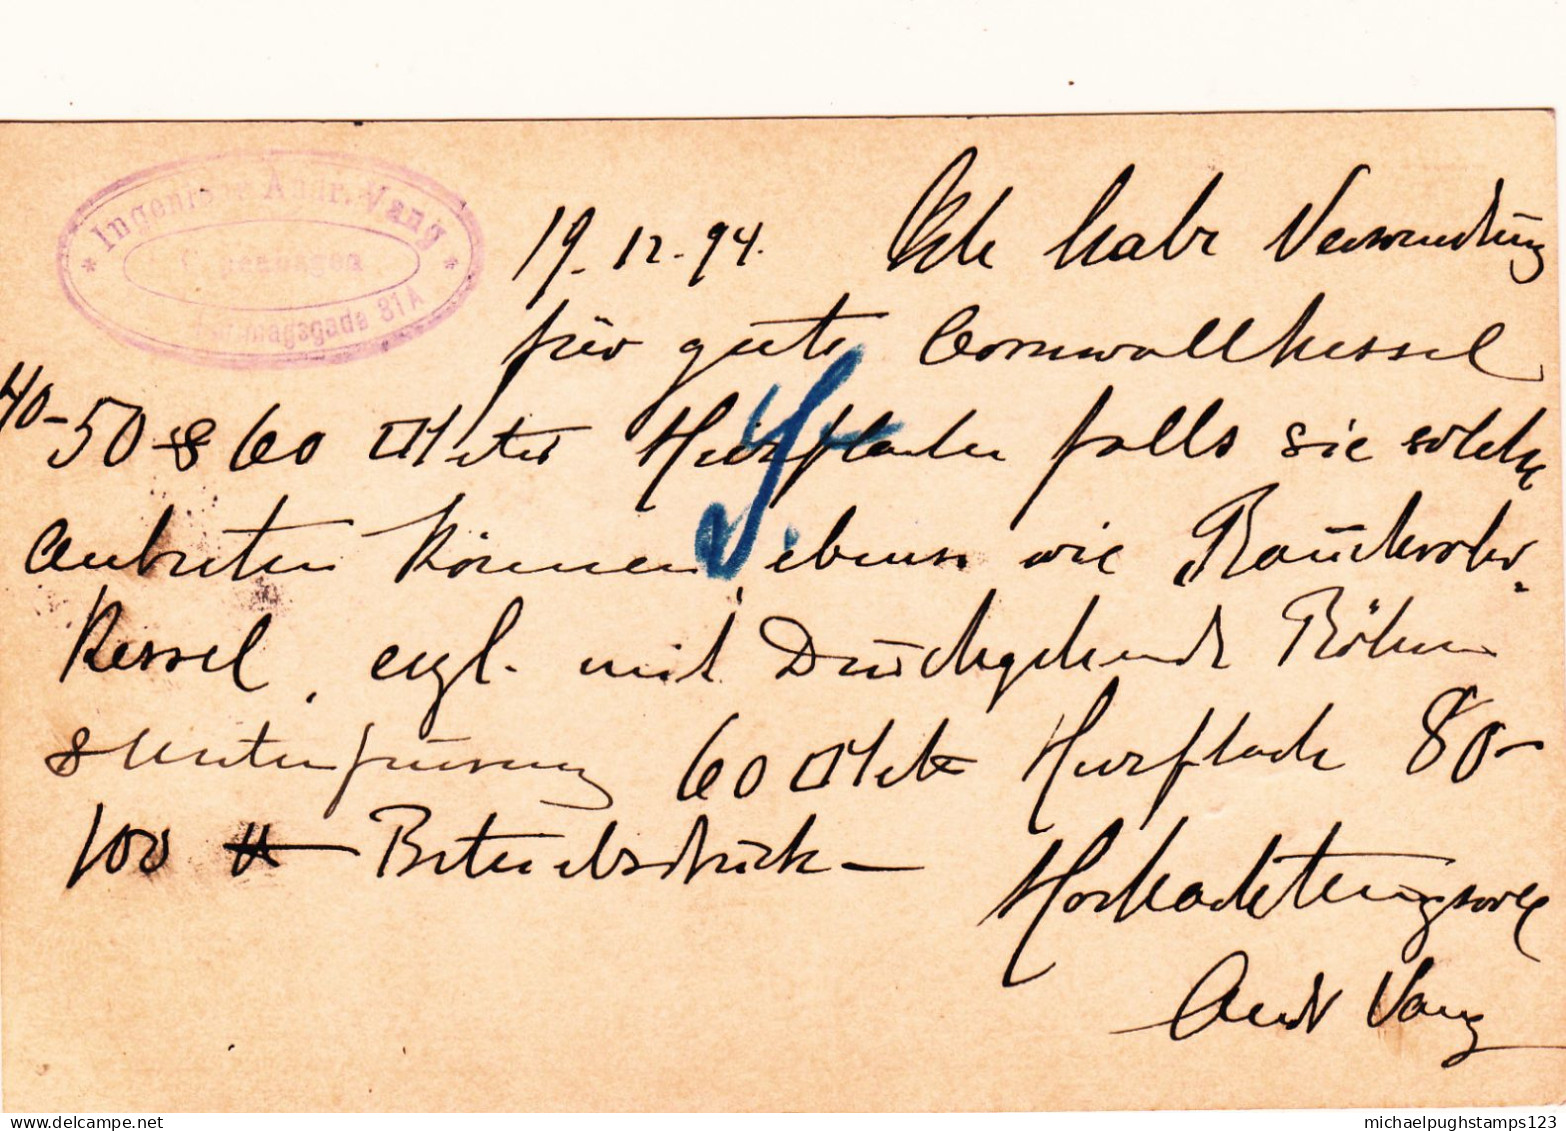 Ingeniør Andr. Vang
Copenhagen
Farimagsgade 81A
19.12.94. Ich habe Verwendung
für gute Cornwallkessel
40-50 & 60 □Meter Heizflache falls sie solche
anbreten können, ebenso wie Rauchrohr
Kessel, evgl. mit Durchgehende Röhren
& Unterfeurung 60 □Mete Heizflache 80-
100 ℔ Betriebsdruck —
Hochachtungsvoll
Andr Vang
michaelpughstamps123